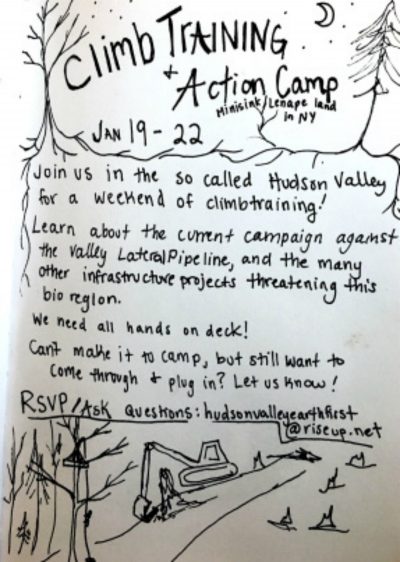 Climb TRAINING
+ Action Camp
Minisink/Lenape land
in NY
JAN 19 - 22
Join us in the so called Hudson Valley
for a weekend of climbtraining!
Learn about the current campaign against
the Valley Lateral Pipeline, and the many
other infrastructure projects threatening this
bio region.
We need all hands on deck!
Can't make it to camp, but still want to
come through + plug in? Let us know!
RSVP/Ask Questions: hudsonvalleyearthfirst
@riseup.net